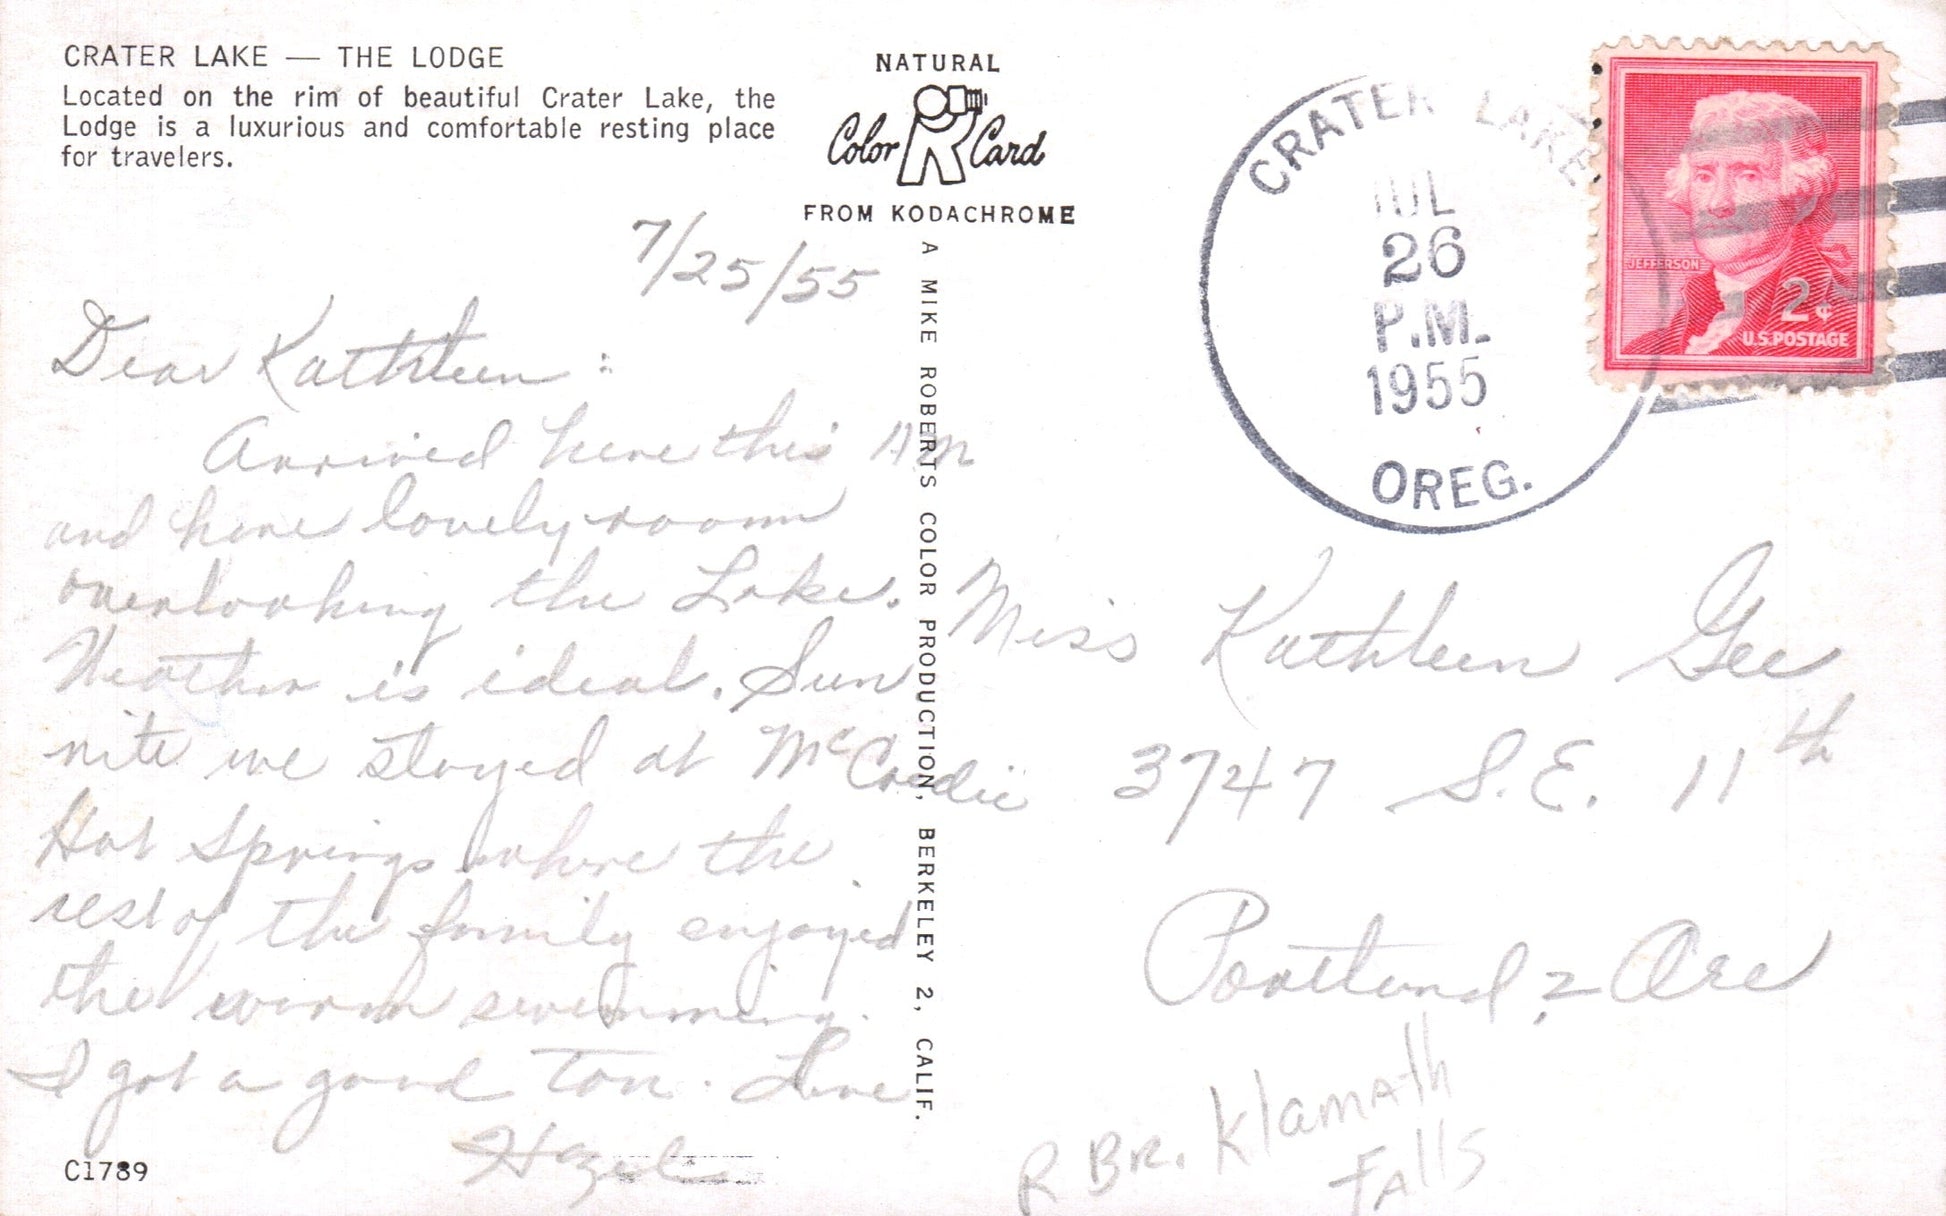 CRATER LAKE — THE LODGE
Located on the rim of beautiful Crater Lake, the
Lodge is a luxurious and comfortable resting place
for travelers.
NATURAL
Color Card
FROM KODACHROME
A MIKE ROBERTS COLOR PRODUCTION, BERKELEY 2, CALIF.
7/25/55
Dear Kathleen:
Arrived here this AM
and have lovely room
overlooking the Lake.
Weather is ideal. Sun
nite we stayed at McCredie
Hot Springs where the
rest of the family enjoyed
the warm swimming.
I got a good tan. Love
Hazel
C1789
CRATER LAKE,
JUL
26
P.M.
1955
OREG.
JEFFERSON
2¢
U.S. POSTAGE
Miss Kathleen Gee
3747 S.E. 11th
Portland, 2 Ore
R BR. Klamath
Falls